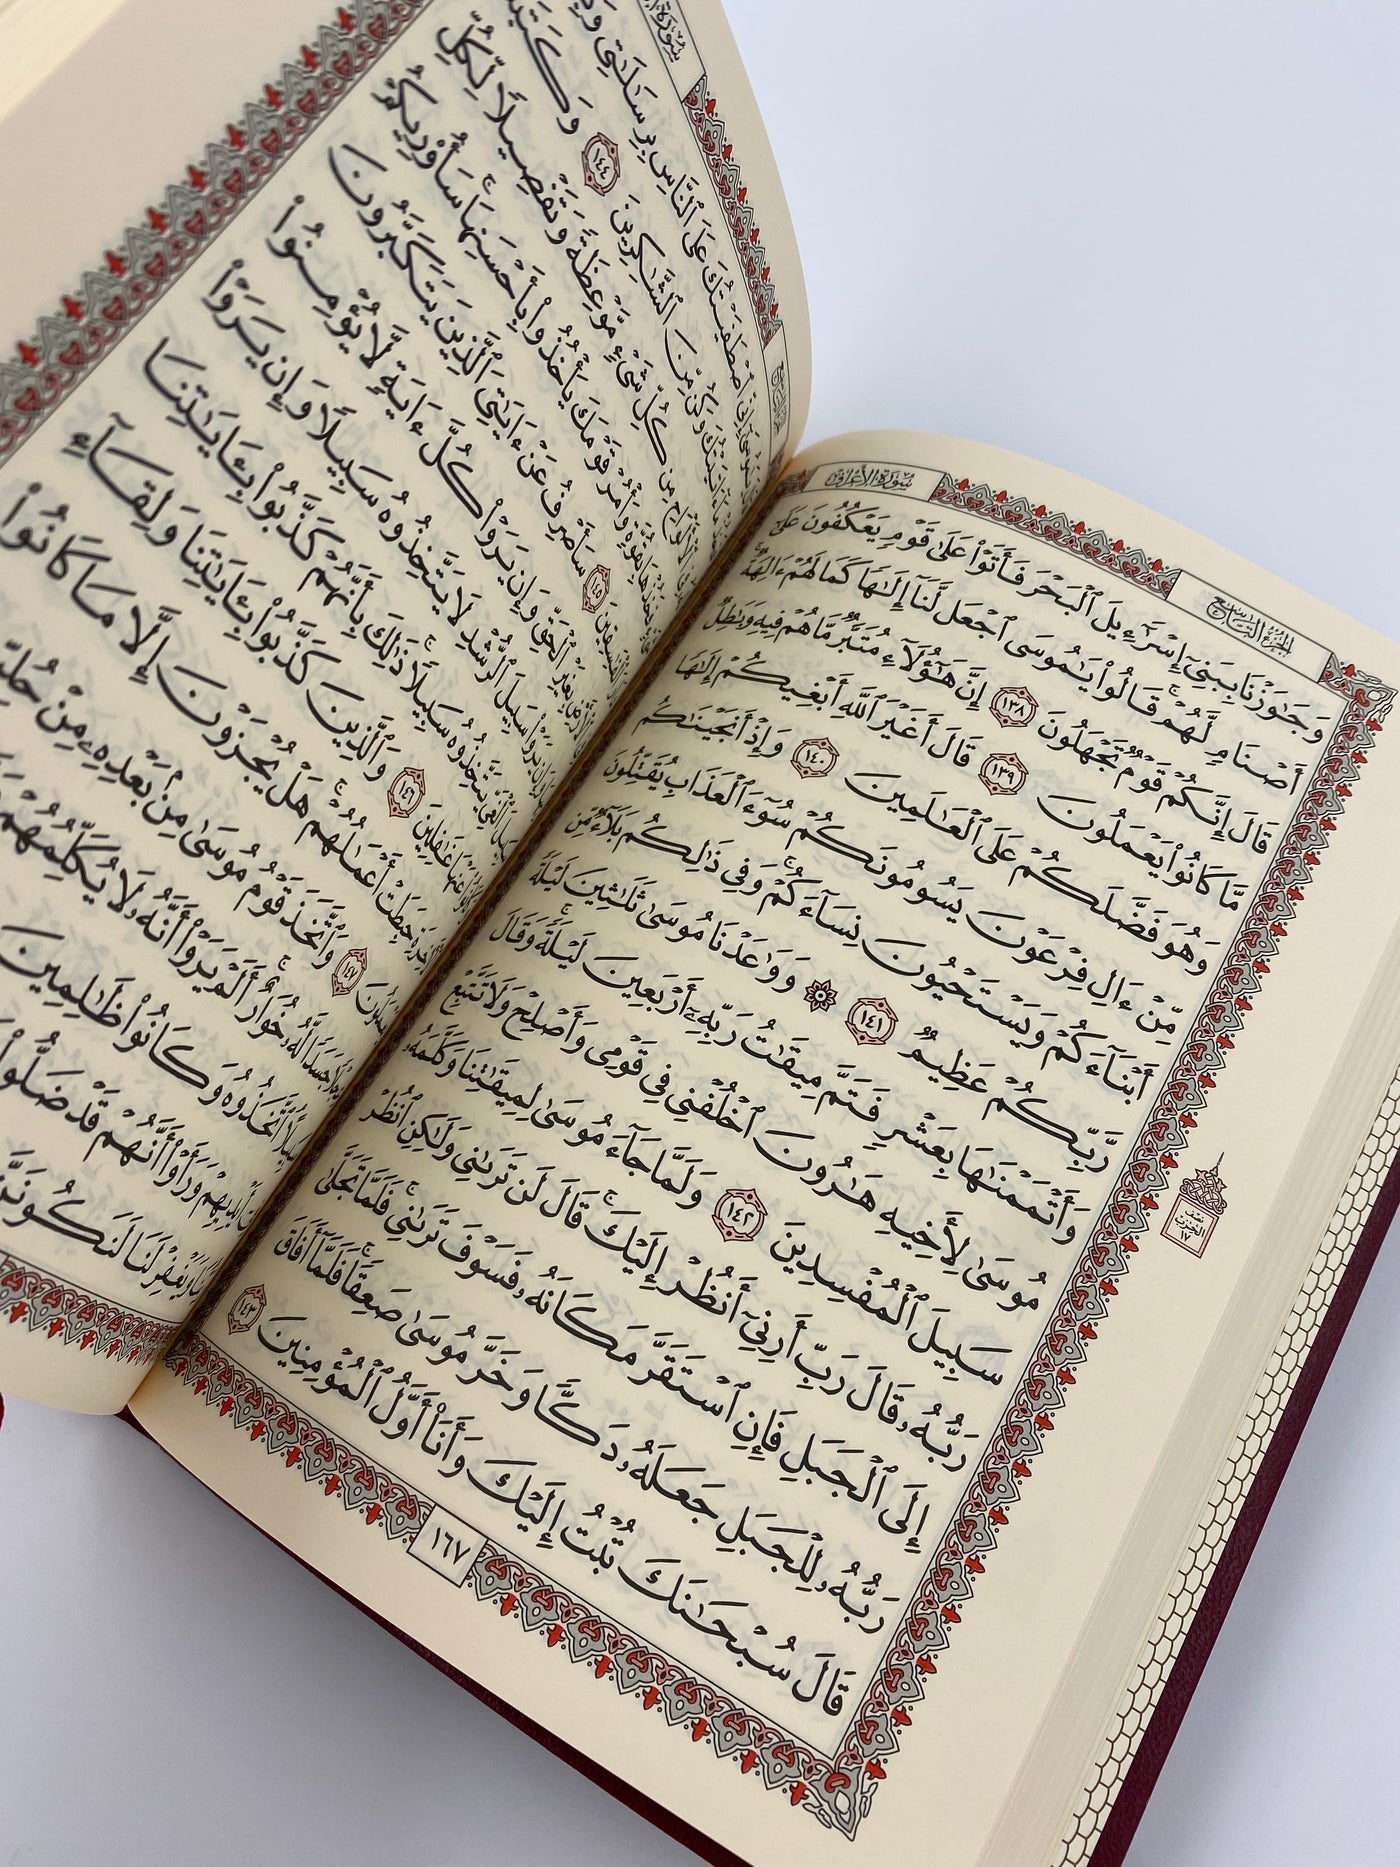 سُورَةُ الأَعْرَافِ
الجُزْءُ التَّاسِعُ
وَجَٰوَزْنَا بِبَنِىٓ إِسْرَٰٓءِيلَ ٱلْبَحْرَ فَأَتَوْا۟ عَلَىٰ قَوْمٍ يَعْكُفُونَ عَلَىٰٓ
أَصْنَامٍ لَّهُمْ ۚ قَالُوا۟ يَٰمُوسَى ٱجْعَل لَّنَآ إِلَٰهًا كَمَا لَهُمْ ءَالِهَةٌ ۚ
قَالَ إِنَّكُمْ قَوْمٌ تَجْهَلُونَ ١٣٨ إِنَّ هَٰٓؤُلَآءِ مُتَبَّرٌ مَّا هُمْ فِيهِ وَبَٰطِلٌ
مَّا كَانُوا۟ يَعْمَلُونَ ١٣٩ قَالَ أَغَيْرَ ٱللَّهِ أَبْغِيكُمْ إِلَٰهًا
وَهُوَ فَضَّلَكُمْ عَلَى ٱلْعَٰلَمِينَ ١٤٠ وَإِذْ أَنجَيْنَٰكُم
مِّنْ ءَالِ فِرْعَوْنَ يَسُومُونَكُمْ سُوٓءَ ٱلْعَذَابِ يُقَتِّلُونَ
أَبْنَآءَكُمْ وَيَسْتَحْيُونَ نِسَآءَكُمْ ۚ وَفِى ذَٰلِكُم بَلَآءٌ مِّن
رَّبِّكُمْ عَظِيمٌ ١٤١ ۞ وَوَٰعَدْنَا مُوسَىٰ ثَلَٰثِينَ لَيْلَةً
وَأَتْمَمْنَٰهَا بِعَشْرٍ فَتَمَّ مِيقَٰتُ رَبِّهِۦٓ أَرْبَعِينَ لَيْلَةً ۚ وَقَالَ
مُوسَىٰ لِأَخِيهِ هَٰرُونَ ٱخْلُفْنِى فِى قَوْمِى وَأَصْلِحْ وَلَا تَتَّبِعْ
سَبِيلَ ٱلْمُفْسِدِينَ ١٤٢ وَلَمَّا جَآءَ مُوسَىٰ لِمِيقَٰتِنَا وَكَلَّمَهُۥ
رَبُّهُۥ قَالَ رَبِّ أَرِنِىٓ أَنظُرْ إِلَيْكَ ۚ قَالَ لَن تَرَىٰنِى وَلَٰكِنِ ٱنظُرْ
إِلَى ٱلْجَبَلِ فَإِنِ ٱسْتَقَرَّ مَكَانَهُۥ فَسَوْفَ تَرَىٰنِى ۚ فَلَمَّا تَجَلَّىٰ
رَبُّهُۥ لِلْجَبَلِ جَعَلَهُۥ دَكًّا وَخَرَّ مُوسَىٰ صَعِقًا ۚ فَلَمَّآ أَفَاقَ
قَالَ سُبْحَٰنَكَ تُبْتُ إِلَيْكَ وَأَنَا۠ أَوَّلُ ٱلْمُؤْمِنِينَ ١٤٣
نصف الحزب ١٧
١٦٧
سُورَةُ
إِنِّى ٱصْطَفَيْتُكَ عَلَى ٱلنَّاسِ بِرِسَٰلَٰتِى
ءَاتَيْتُكَ وَكُن مِّنَ ٱلشَّٰكِرِينَ ١٤٤ وَكَتَبْنَا
ٱلْأَلْوَاحِ مِن كُلِّ شَىْءٍ مَّوْعِظَةً وَتَفْصِيلًا لِّكُلِّ
فَخُذْهَا بِقُوَّةٍ وَأْمُرْ قَوْمَكَ يَأْخُذُوا۟ بِأَحْسَنِهَا ۚ سَأُو۟رِيكُمْ
ٱلْفَٰسِقِينَ ١٤٥ سَأَصْرِفُ عَنْ ءَايَٰتِىَ ٱلَّذِينَ يَتَكَبَّرُونَ
بِغَيْرِ ٱلْحَقِّ وَإِن يَرَوْا۟ كُلَّ ءَايَةٍ لَّا يُؤْمِنُوا۟
يَرَوْا۟ سَبِيلَ ٱلرُّشْدِ لَا يَتَّخِذُوهُ سَبِيلًا وَإِن يَرَوْا۟
سَبِيلَ ٱلْغَىِّ يَتَّخِذُوهُ سَبِيلًا ۚ ذَٰلِكَ بِأَنَّهُمْ كَذَّبُوا۟ بِـَٔايَٰتِنَا
عَنْهَا غَٰفِلِينَ ١٤٦ وَٱلَّذِينَ كَذَّبُوا۟ بِـَٔايَٰتِنَا وَلِقَآءِ
حَبِطَتْ أَعْمَٰلُهُمْ ۚ هَلْ يُجْزَوْنَ إِلَّا مَا كَانُوا۟
١٤٧ وَٱتَّخَذَ قَوْمُ مُوسَىٰ مِنۢ بَعْدِهِۦ مِنْ
جَسَدًا لَّهُۥ خُوَارٌ ۚ أَلَمْ يَرَوْا۟ أَنَّهُۥ لَا يُكَلِّمُهُمْ
ٱتَّخَذُوهُ وَكَانُوا۟ ظَٰلِمِينَ
أَيْدِيهِمْ وَرَأَوْا۟ أَنَّهُمْ قَدْ ضَلُّوا۟
وَيَغْفِرْ لَنَا لَنَكُونَنَّ